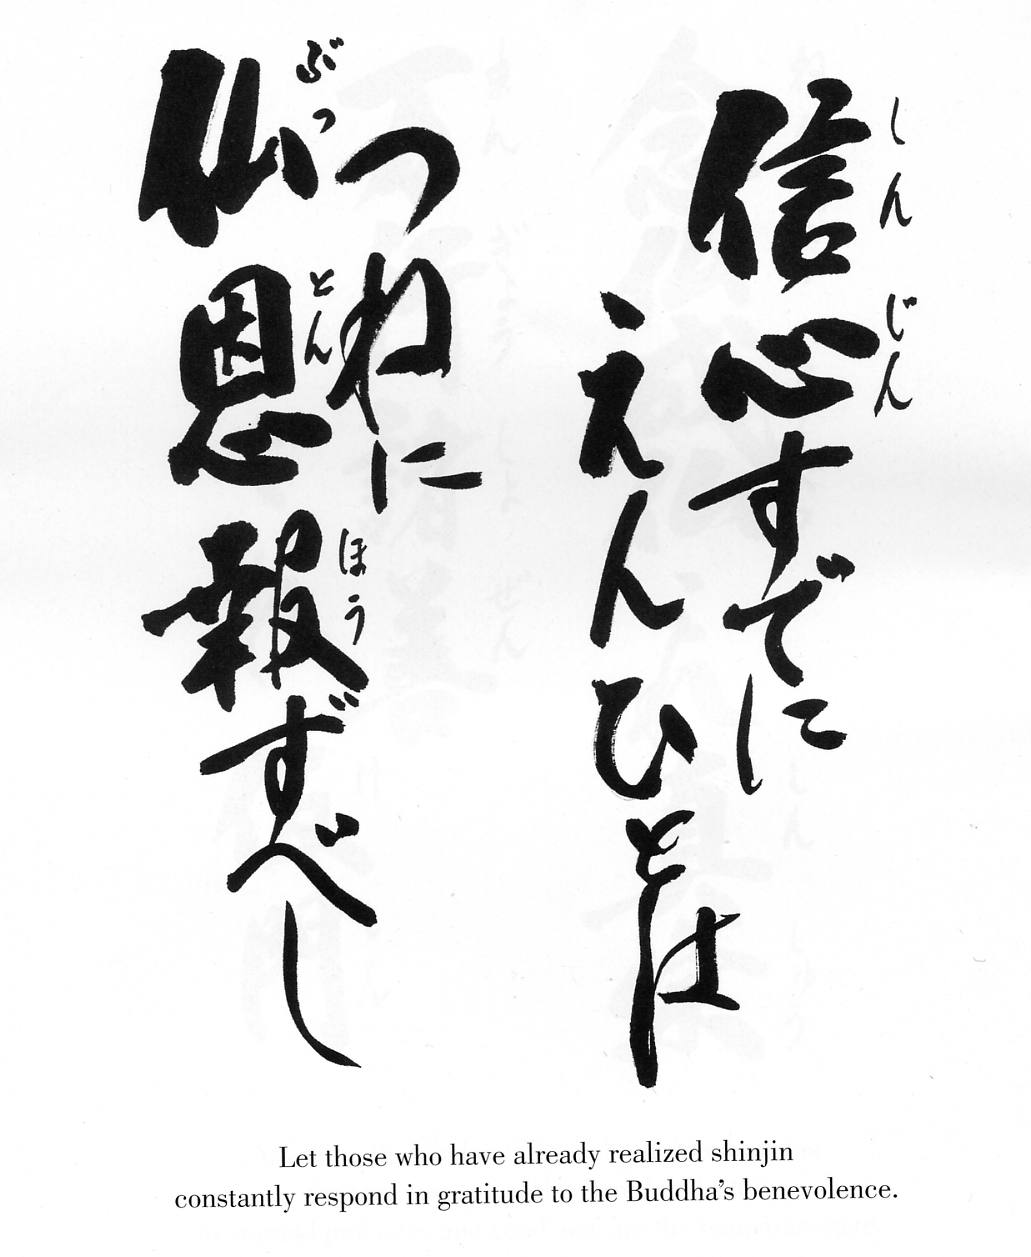 しんじん
信心すでに
えんひとは
つねに
ぶっとんほう
仏恩報ずべし
Let those who have already realized shinjin
constantly respond in gratitude to the Buddha’s benevolence.